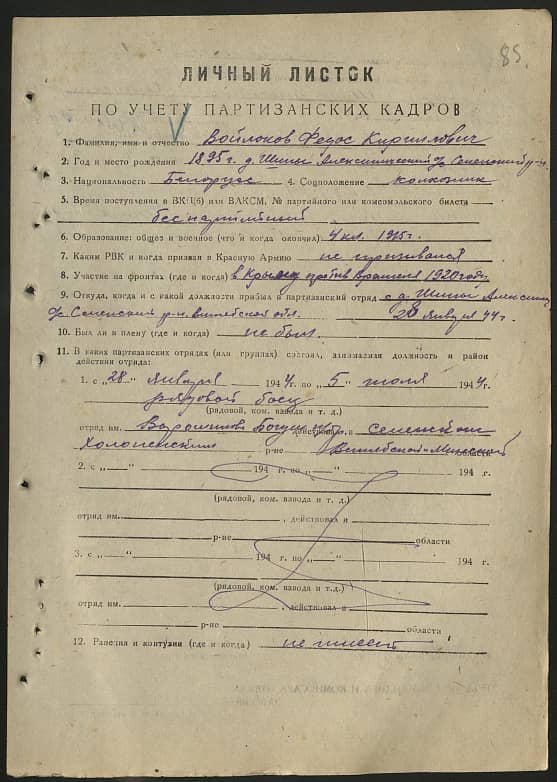 85.
ЛИЧНЫЙ ЛИСТОК
ПО УЧЕТУ ПАРТИЗАНСКИХ КАДРОВ
1. Фамилия, имя и отчество Войлоков Федос Кириллович
2. Год и место рождения 1895 г. д. Шипы Алексиничский с/с Сенненский р-н.
3. Национальность Белорус 4. Соцположение колхозник
5. Время поступления в ВКП(б) или ВЛКСМ, № партийного или комсомольского билета
беспартийный
6. Образование: общее и военное (что и когда окончил) 4 кл. 1915 г.
7. Каким РВК и когда призван в Красную Армию не призывался
8. Участие на фронтах (где и когда) в Крыму против Врангеля 1920 году
9. Откуда, когда и с какой должности прибыл в партизанский отряд с д. Шипы Алексин.
с/с Сенненский р-н. витебской обл. 28 Января 44 г.
10. Был ли в плену (где и когда) не был
11. В каких партизанских отрядах (или группах) состоял, занимаемая должность и район
действия отряда:
1. с „28" Января 1944 г. по „5" июля 1944 г.
рядовой боец
(рядовой, ком. взвода и т. д.)
отряд им. Ворошилова действовал в Сенненском
Холопенический р-не Витебской-Минской
2. с „—" 194 г. по „—" 194 г.
(рядовой, ком. взвода и т. д.)
отряд им. , действовал в
р-не области
3. с „—" 194 г. по „—" 194 г.
(рядовой, ком. взвода и т. д.)
отряд им. , действовал в
р-не области
12. Ранения и контузии (где и когда) не имеет